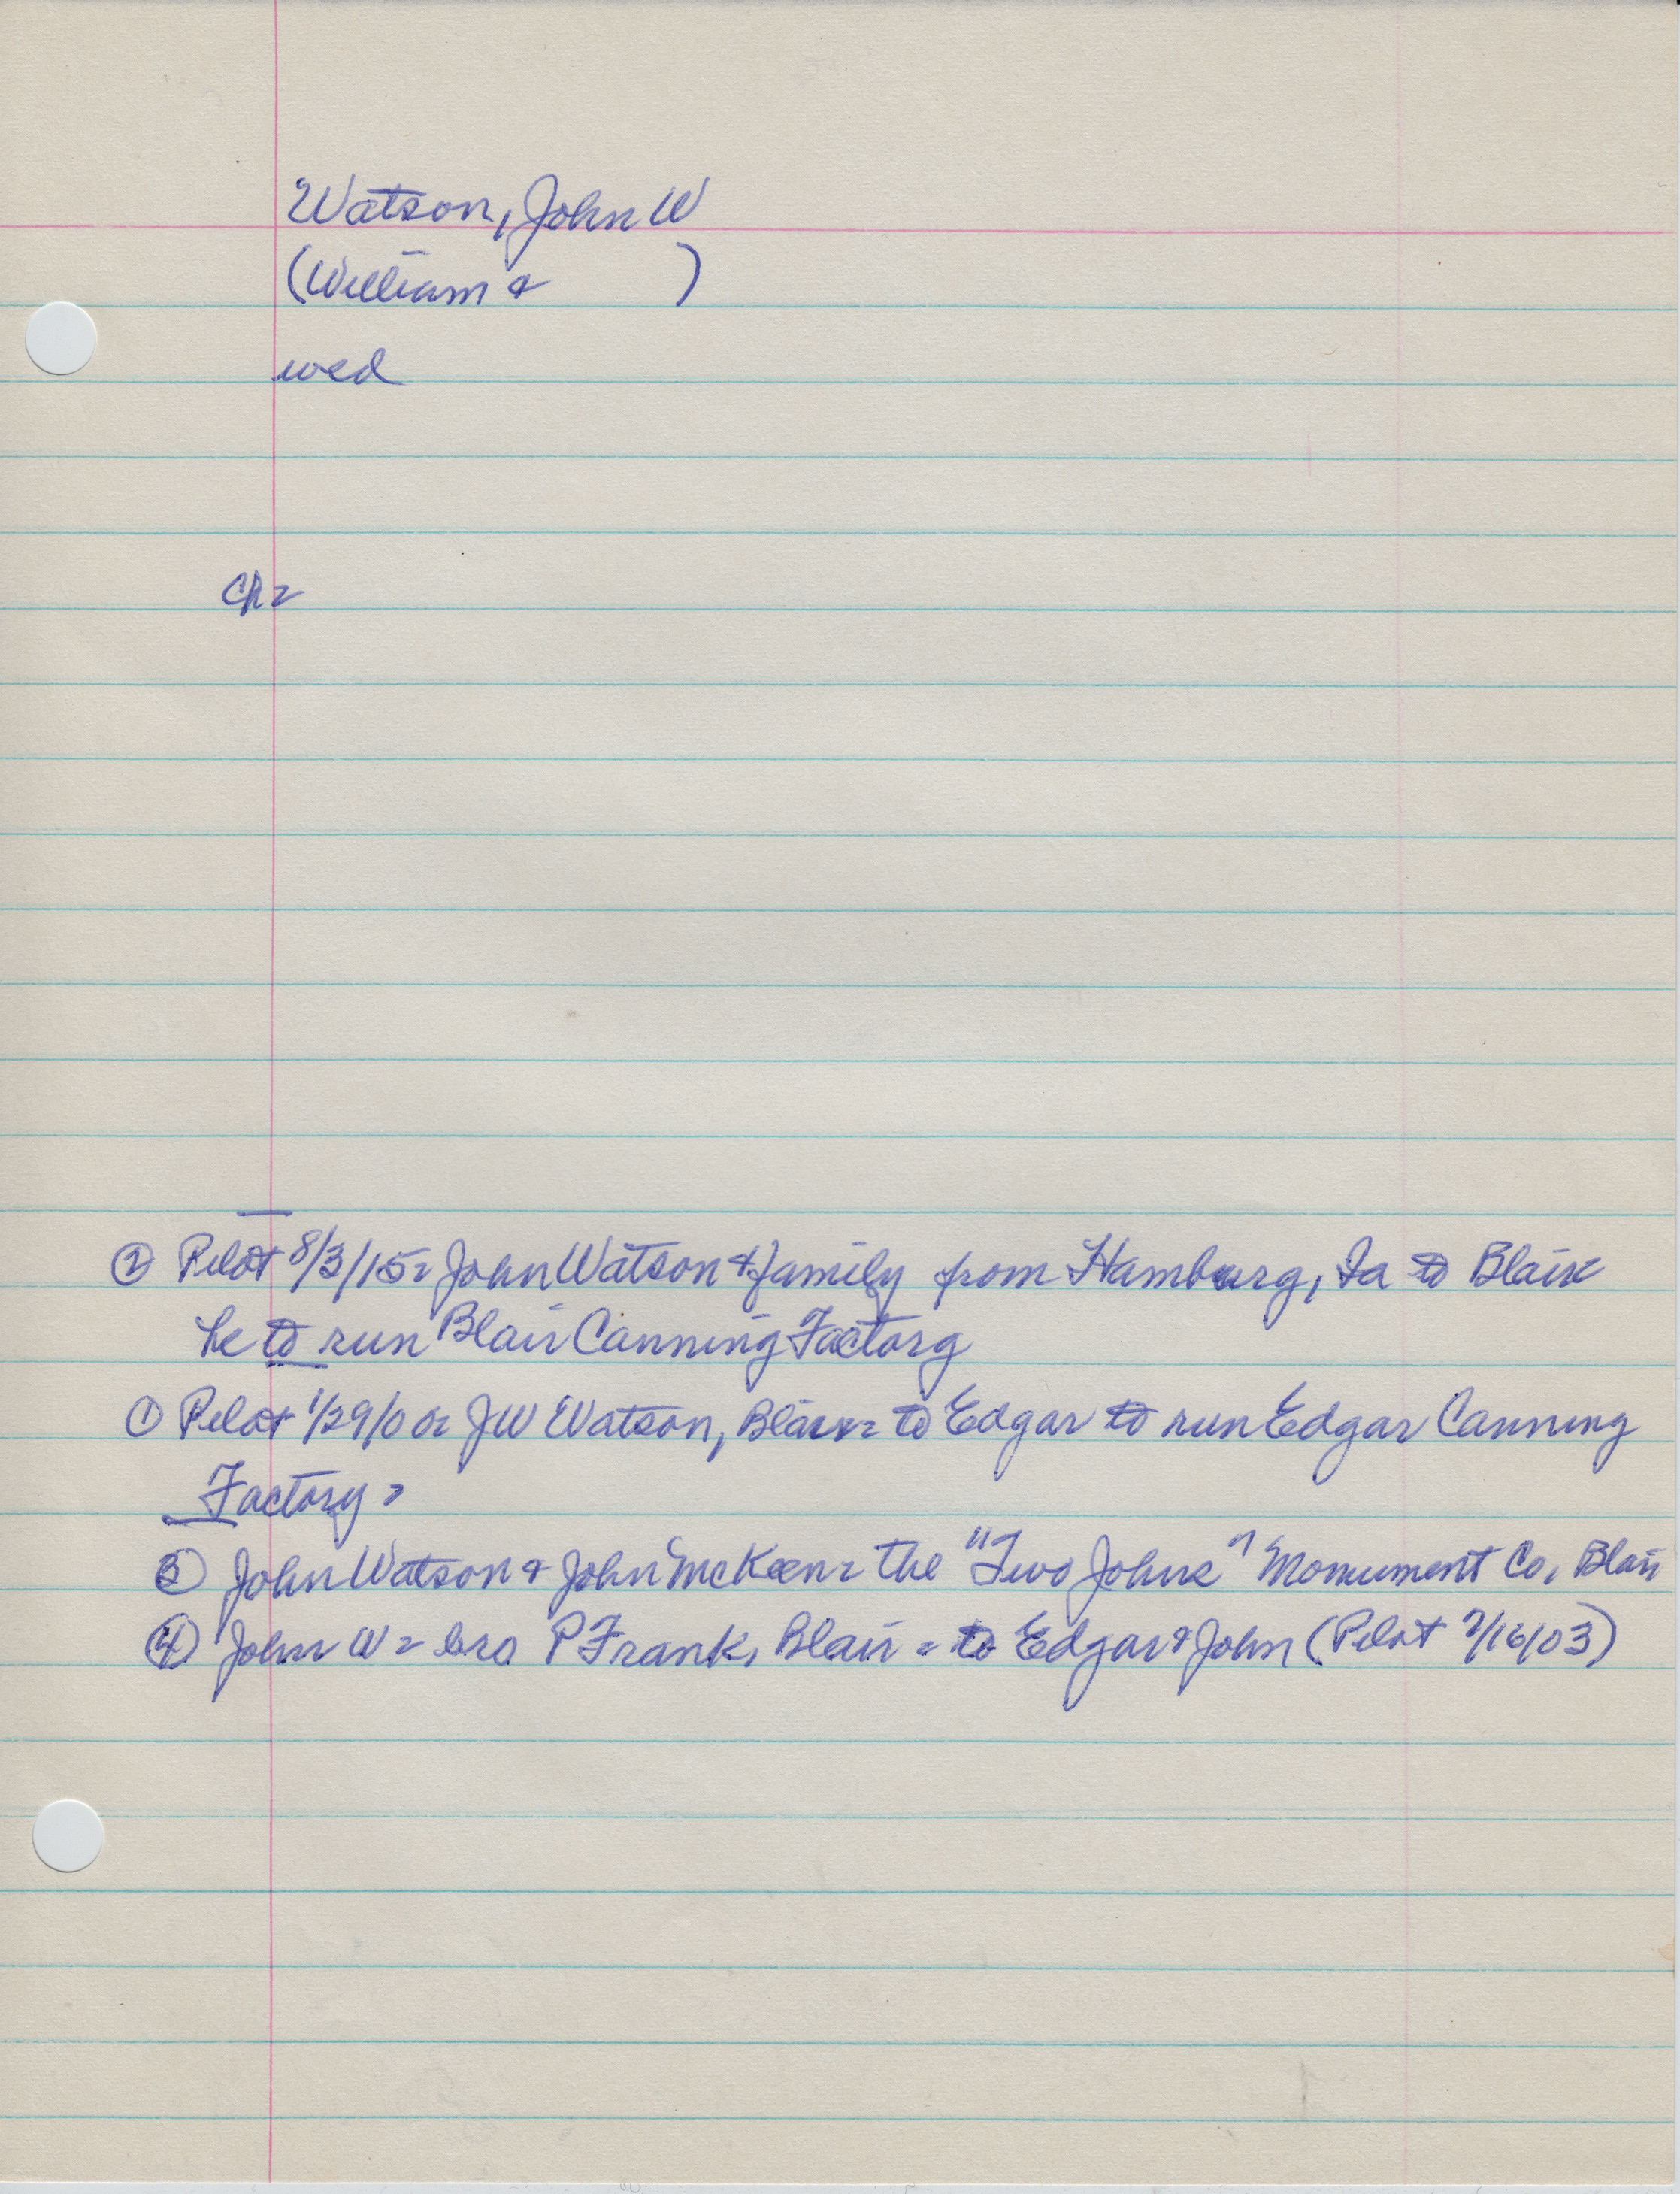 Watson, John W
(William & )
wed
Ch =
② Pilot 8/3/15 = John Watson & family from Hamburg, Ia to Blair
he to run Blair Canning Factory
① Pilot JW Watson, Blair = to Edgar to run Edgar Canning
Factory =
③ John Watson & John McKeen = the "Two Johns" Monument Co, Blair
④ John W = bro P Frank, Blair = to Edgar & John (Pilot 7/16/03)